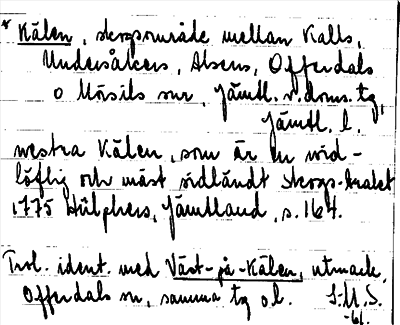 * Kälen, skogsområde mellan Kalls,
Undersåkers, Alsens, Offerdals
o Mörsils snr, Jämtl. v. doms. tg,
Jämtl. l.
westra Kälen, som är en wid-
löftig och mäst sidländt skogs-trakt
1775 Hülphers, Jämtland, s. 164.
Trol. ident. med Väst-på-Kälen, utmark,
Offerdals sn, samma tg o l. S.U.S.
-61.